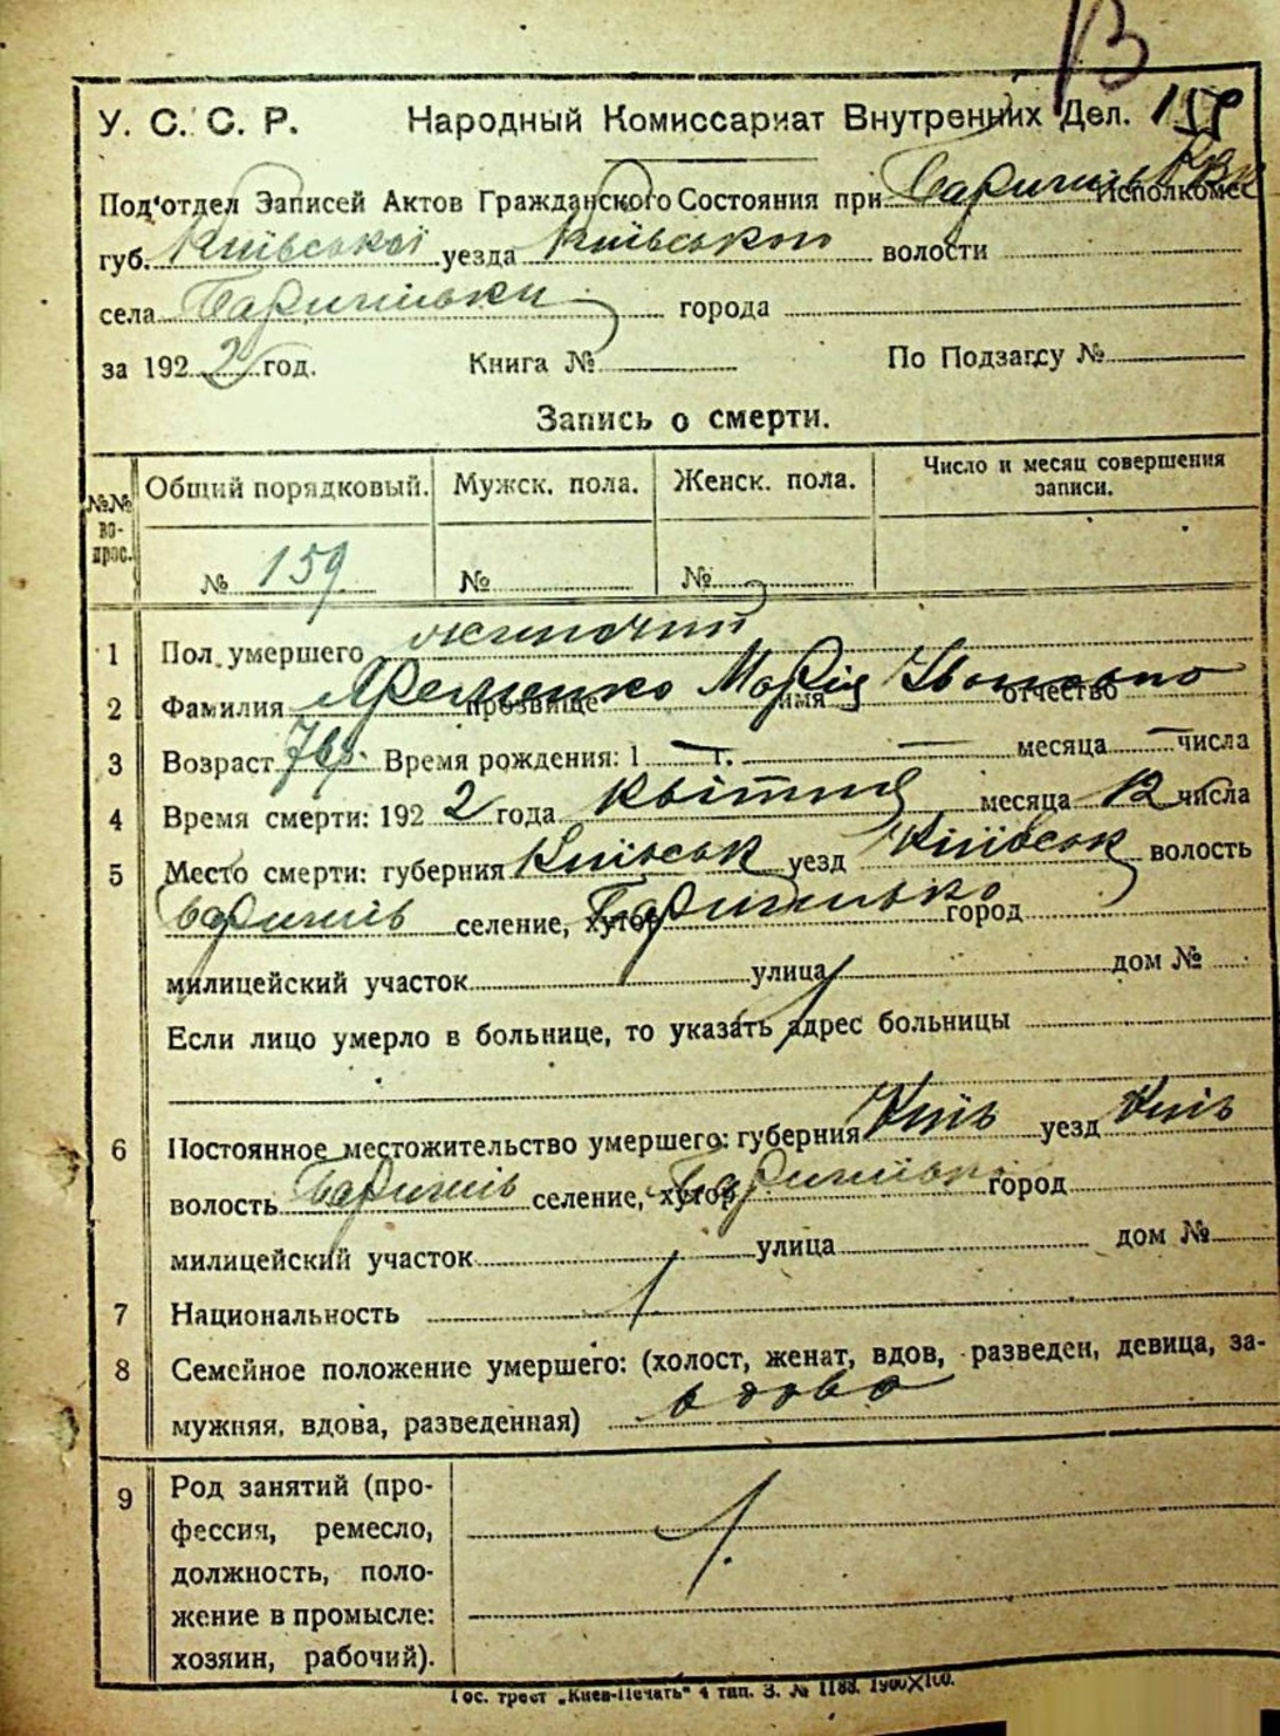 В
У. С. С. Р. Народный Комиссариат Внутренних Дел. 159
Под'отдел Записей Актов Гражданского Состояния при Исполкоме
губ. Київської уезда Київського волости
села Баришівки города
за 192 2 год. Книга № По Подзагсу №
Запись о смерти.
№№ вопрос. Общий порядковый. Мужск. пола. Женск. пола. Число и месяц совершения записи.
№ 159 № №
1 Пол умершего жиночий
2 Фамилия Яременко прозвище Марія имя Ивановна отчество
3 Возраст 76 р. Время рождения: 1 — г. — месяца — числа
4 Время смерти: 192 2 года квітня месяца 12 числа
5 Место смерти: губерния Київськ уезд Київськ волость
Баришів селение, хутор Баришівка город
милицейский участок улица дом №
Если лицо умерло в больнице, то указать адрес больницы
6 Постоянное местожительство умершего: губерния Київ уезд Київ
волость Баришів селение, хутор Баришівка город
милицейский участок улица дом №
7 Национальность
8 Семейное положение умершего: (холост, женат, вдов, разведен, девица, за-
мужняя, вдова, разведенная) вдова
9 Род занятий (про-
фессия, ремесло,
должность, поло-
жение в промысле:
хозяин, рабочий).
Гос. трест „Киев-Печать" 4 тип. З. № 1188. 1900Х100.